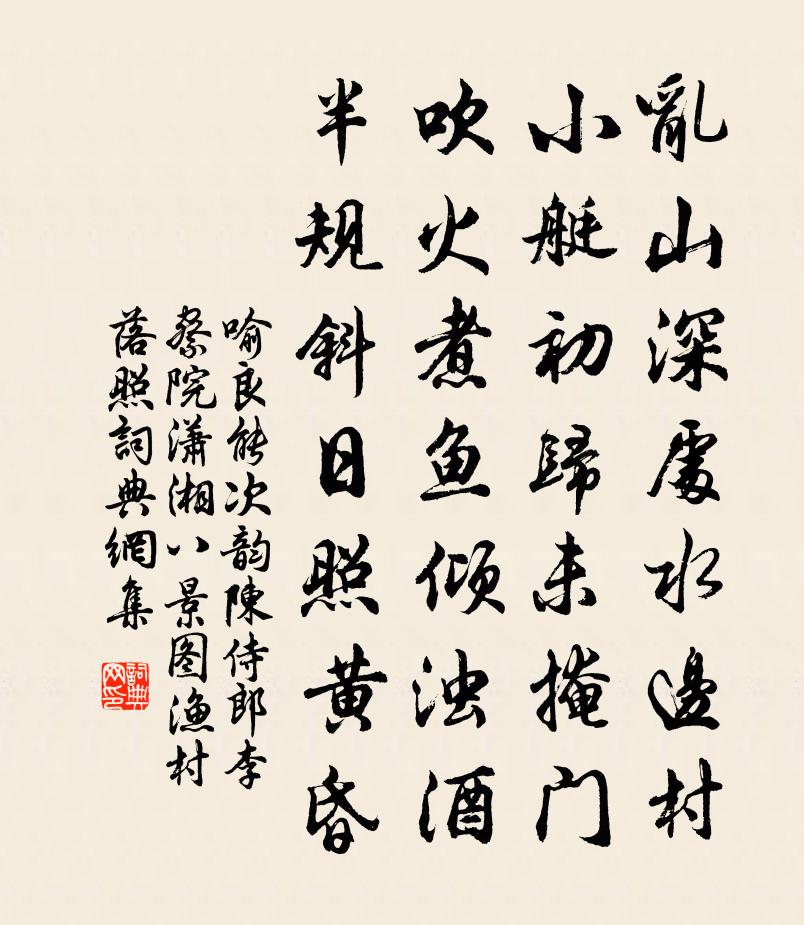 亂山深處水邊村
小艇初歸未掩門
吹火煮鱼倾浊酒
半规斜日照黄昏
喻良能次韵陳侍郎李
察院潇湘八景图渔村
落照詞典網集
詞典网印